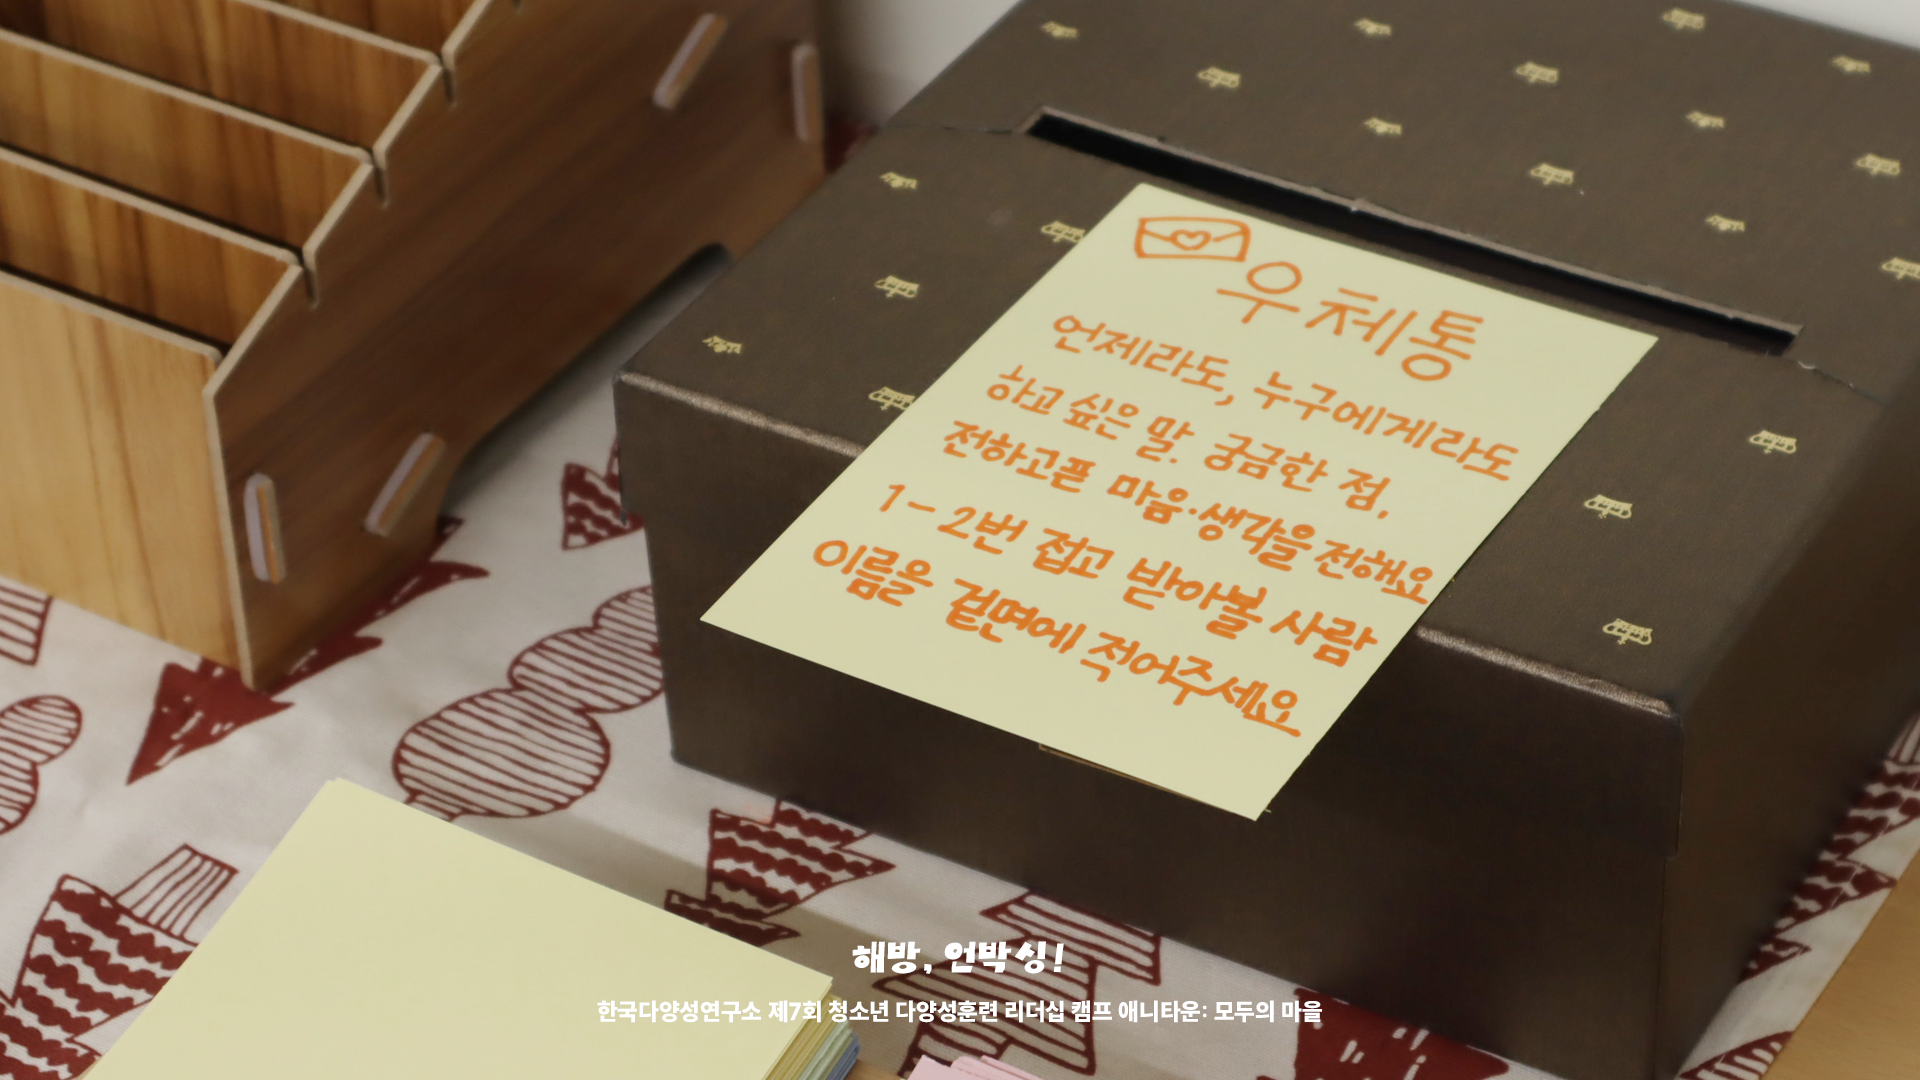 우체통
언제라도, 누구에게라도
하고 싶은 말. 궁금한 점,
전하고픈 마음·생각을 전해요
1-2번 접고 받아볼 사람
이름을 겉면에 적어주세요
해방, 언박싱!
한국다양성연구소 제7회 청소년 다양성훈련 리더십 캠프 애니타운: 모두의 마을